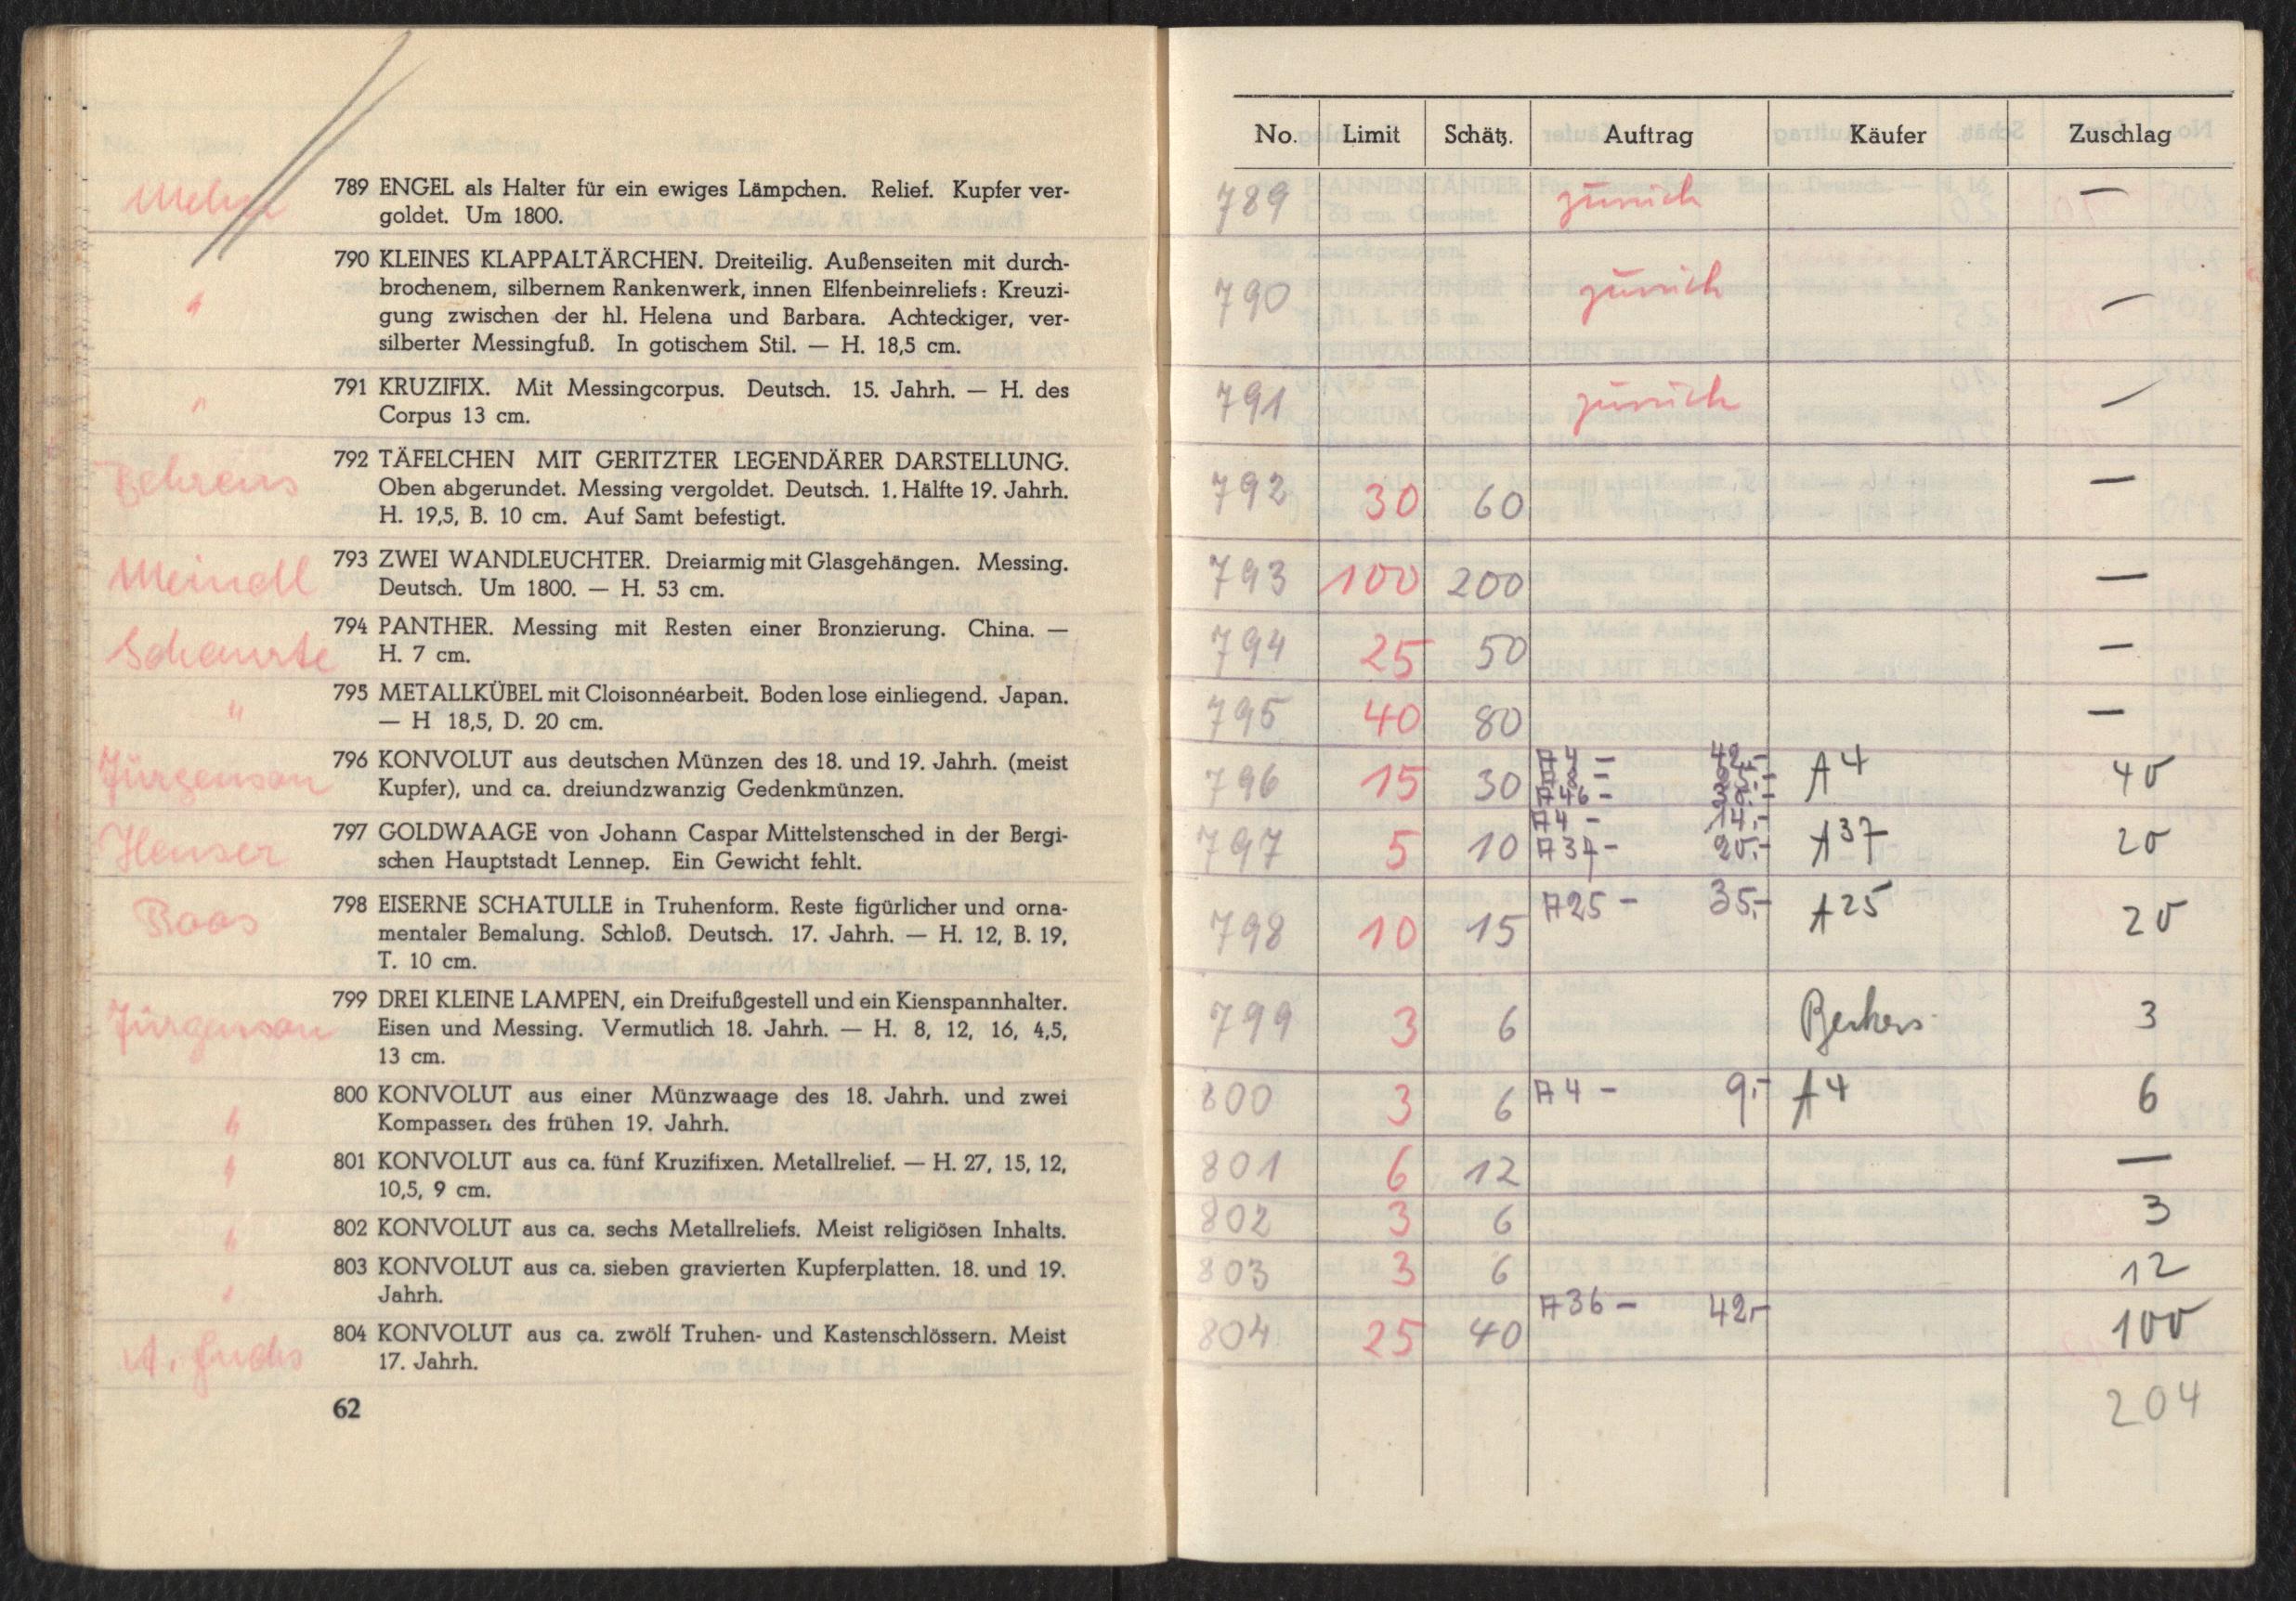 Behrens
Meindl
Schaurte
"
Jürgenson
Heuser
Roos
Jürgenson
"
"
"
"
A. Fuchs
789 ENGEL als Halter für ein ewiges Lämpchen. Relief. Kupfer ver-
goldet. Um 1800.
790 KLEINES KLAPPALTÄRCHEN. Dreiteilig. Außenseiten mit durch-
brochenem, silbernem Rankenwerk, innen Elfenbeinreliefs: Kreuzi-
gung zwischen der hl. Helena und Barbara. Achteckiger, ver-
silberter Messingfuß. In gotischem Stil. — H. 18,5 cm.
791 KRUZIFIX. Mit Messingcorpus. Deutsch. 15. Jahrh. — H. des
Corpus 13 cm.
792 TÄFELCHEN MIT GERITZTER LEGENDÄRER DARSTELLUNG.
Oben abgerundet. Messing vergoldet. Deutsch. 1. Hälfte 19. Jahrh.
H. 19,5, B. 10 cm. Auf Samt befestigt.
793 ZWEI WANDLEUCHTER. Dreiarmig mit Glasgehängen. Messing.
Deutsch. Um 1800. — H. 53 cm.
794 PANTHER. Messing mit Resten einer Bronzierung. China. —
H. 7 cm.
795 METALLKÜBEL mit Cloisonnéarbeit. Boden lose einliegend. Japan.
— H 18,5, D. 20 cm.
796 KONVOLUT aus deutschen Münzen des 18. und 19. Jahrh. (meist
Kupfer), und ca. dreiundzwanzig Gedenkmünzen.
797 GOLDWAAGE von Johann Caspar Mittelstensched in der Bergi-
schen Hauptstadt Lennep. Ein Gewicht fehlt.
798 EISERNE SCHATULLE in Truhenform. Reste figürlicher und orna-
mentaler Bemalung. Schloß. Deutsch. 17. Jahrh. — H. 12, B. 19,
T. 10 cm.
799 DREI KLEINE LAMPEN, ein Dreifußgestell und ein Kienspannhalter.
Eisen und Messing. Vermutlich 18. Jahrh. — H. 8, 12, 16, 4,5,
13 cm.
800 KONVOLUT aus einer Münzwaage des 18. Jahrh. und zwei
Kompassen des frühen 19. Jahrh.
801 KONVOLUT aus ca. fünf Kruzifixen. Metallrelief. — H. 27, 15, 12,
10,5, 9 cm.
802 KONVOLUT aus ca. sechs Metallreliefs. Meist religiösen Inhalts.
803 KONVOLUT aus ca. sieben gravierten Kupferplatten. 18. und 19.
Jahrh.
804 KONVOLUT aus ca. zwölf Truhen- und Kastenschlössern. Meist
17. Jahrh.
62
No. Limit Schätz. Auftrag Käufer Zuschlag
789 zurück —
790 zurück —
791 zurück —
792 30 60 —
793 100 200 —
794 25 50 —
795 40 80 —
A4 - 42.-
796 15 30 A4 40
A46 -
A4 - 14.-
797 5 10 A37 - 20.- A37 20
798 10 15 A25 - 35.- A25 20
799 3 6 3
800 3 6 A4 - 9.- A4 6
801 6 12 —
802 3 6 3
803 3 6 12
804 25 40 A36 - 42.- 100
204